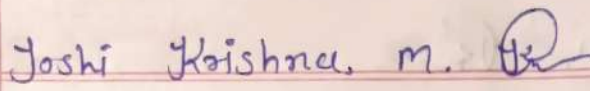 Joshi Krishna. M.